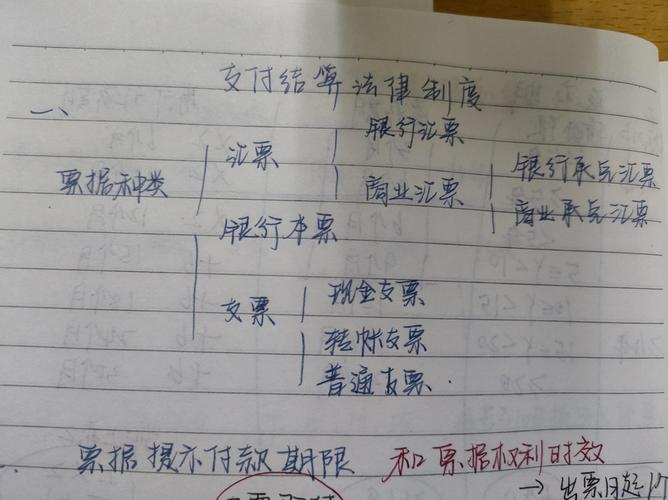 支付结算法律制度
一、
银行汇票
汇票
银行承兑汇票
票据种类
商业汇票
商业承兑汇票
银行本票
现金支票
支票
转帐支票
普通支票.
票据提示付款期限 和票据权利时效
→ 出票日起